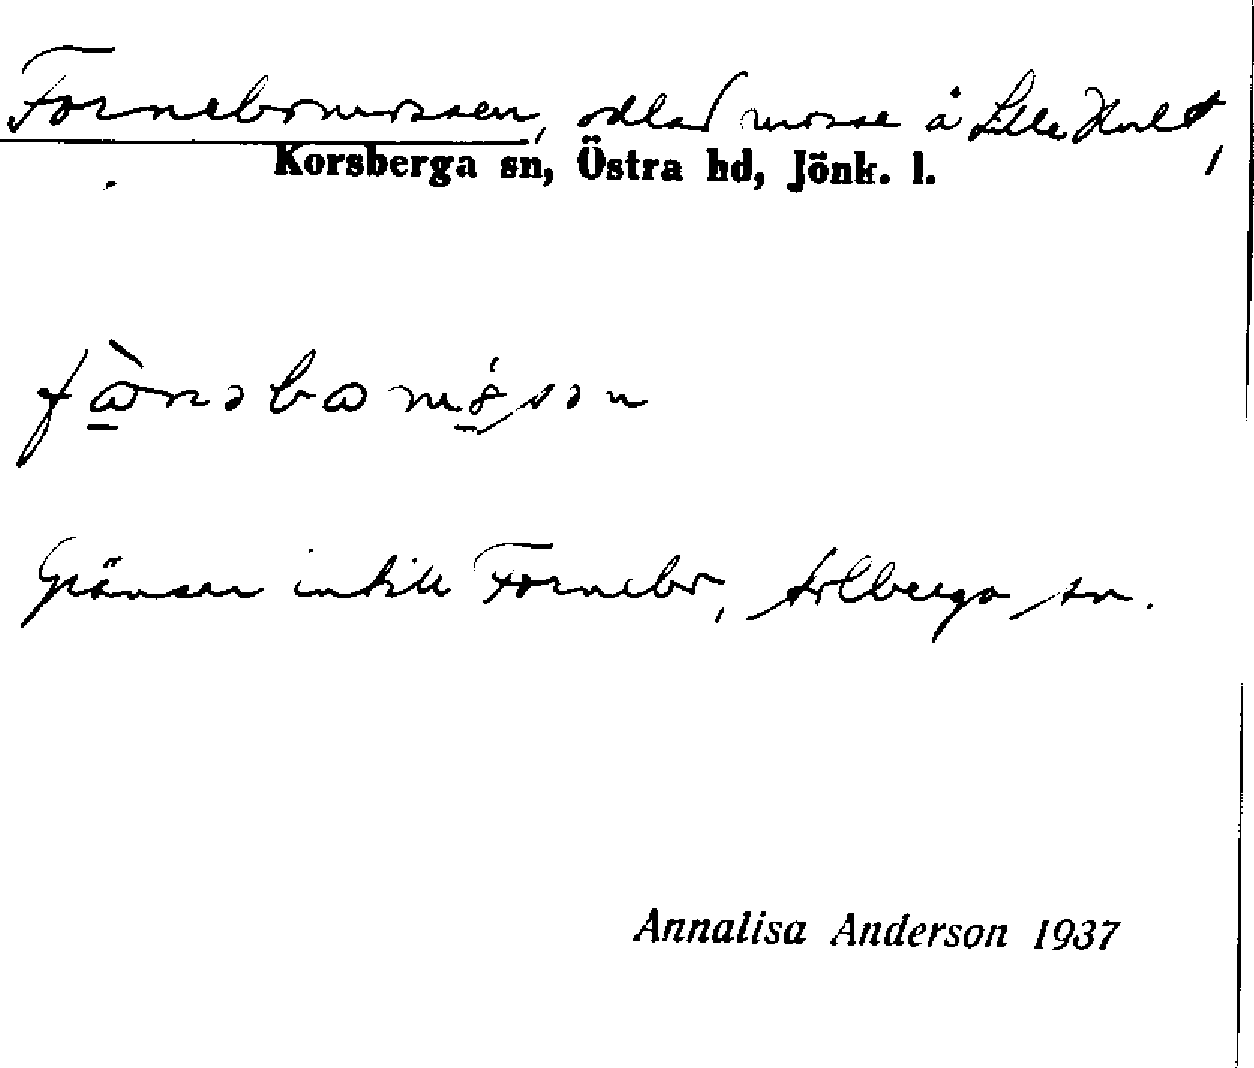 Fornebomossen, odlad mosse å Lilla Hult,
Korsberga sn, Östra hd, Jönk. l.
Gränsar intill Fornebo, Solberga sn.
Annalisa Anderson 1937